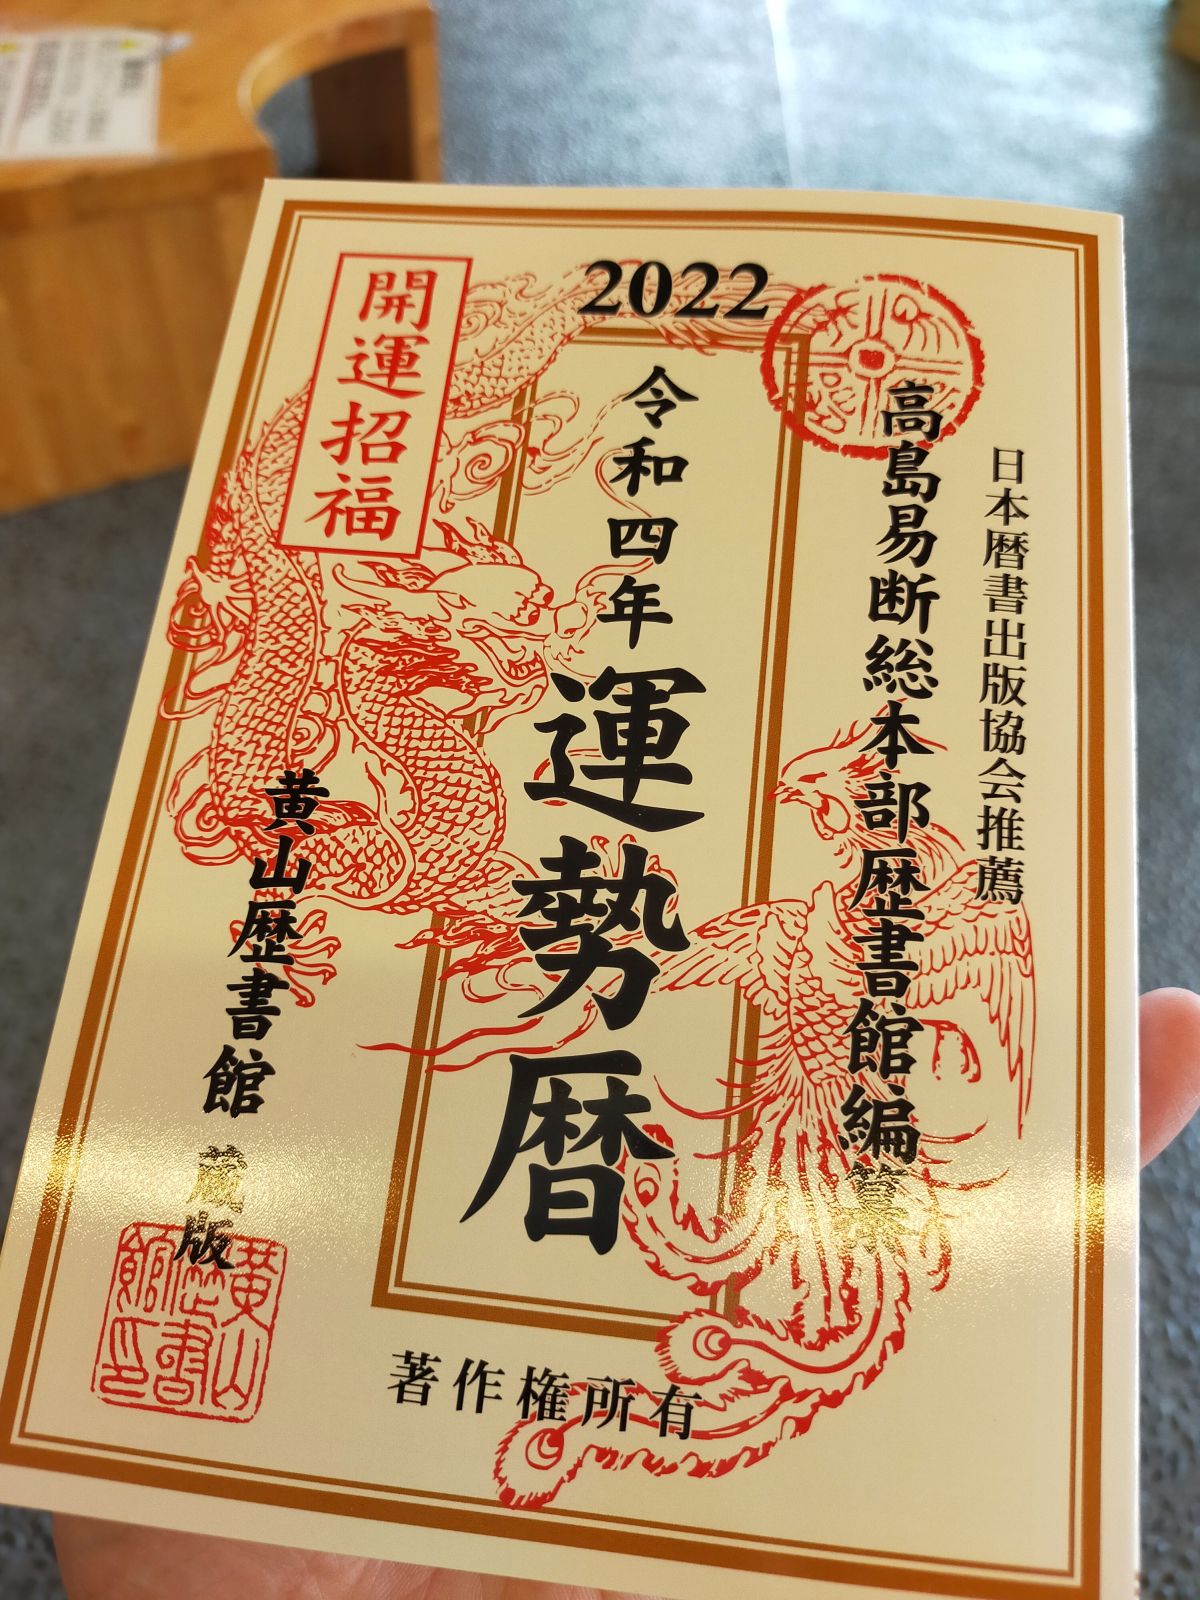 2022
日本暦書出版協会推薦
高島易断総本部歴書館編纂
令和四年
運勢暦
開運招福
黄山歴書館 蔵版
著作権所有